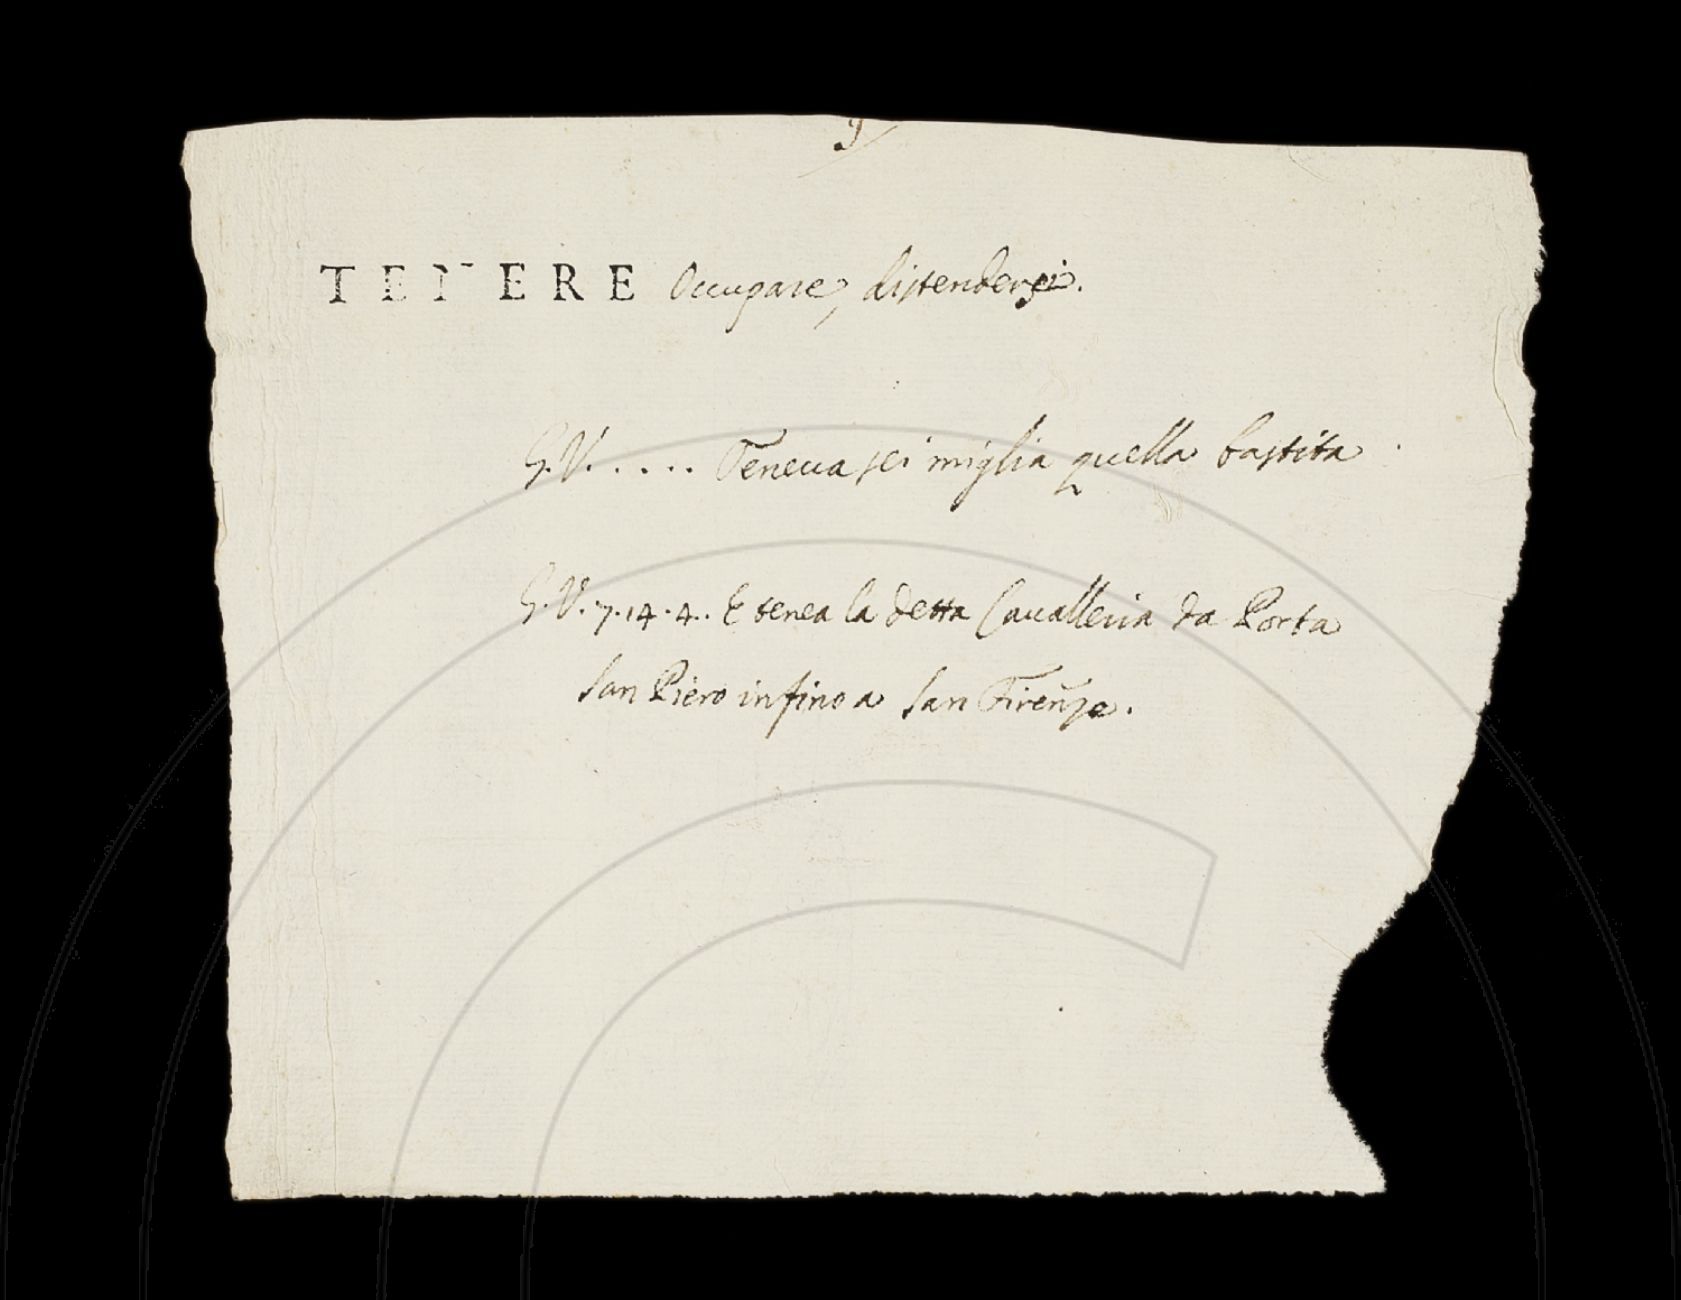 TENERE Occupare, distendersi.
G.V. . . . . Teneua sei miglia quella bastita
G.V. 7. 14. 4.. E tenea la detta Caualleria da Porta
San Piero infino a San Firenze.